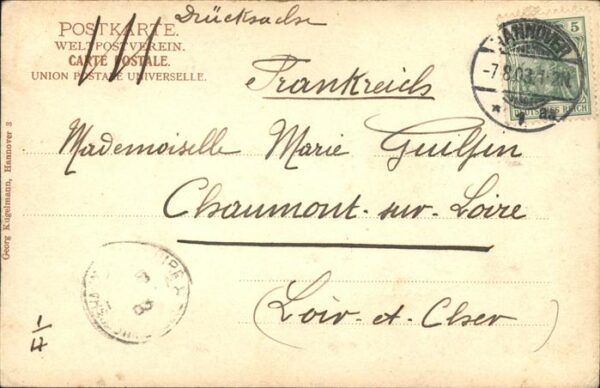 Drücksache
POSTKARTE.
WELTPOSTVEREIN.
CARTE POSTALE.
UNION POSTALE UNIVERSELLE.
5
HANNOVER
-7.8.03.1-2N
* 1 aa
DEUTSCHES REICH
Frankreich
Mademoiselle Marie
Chaumont-sur-Loire
(Loir-et-Cher)
1/4
Georg Kugelmann, Hannover 3